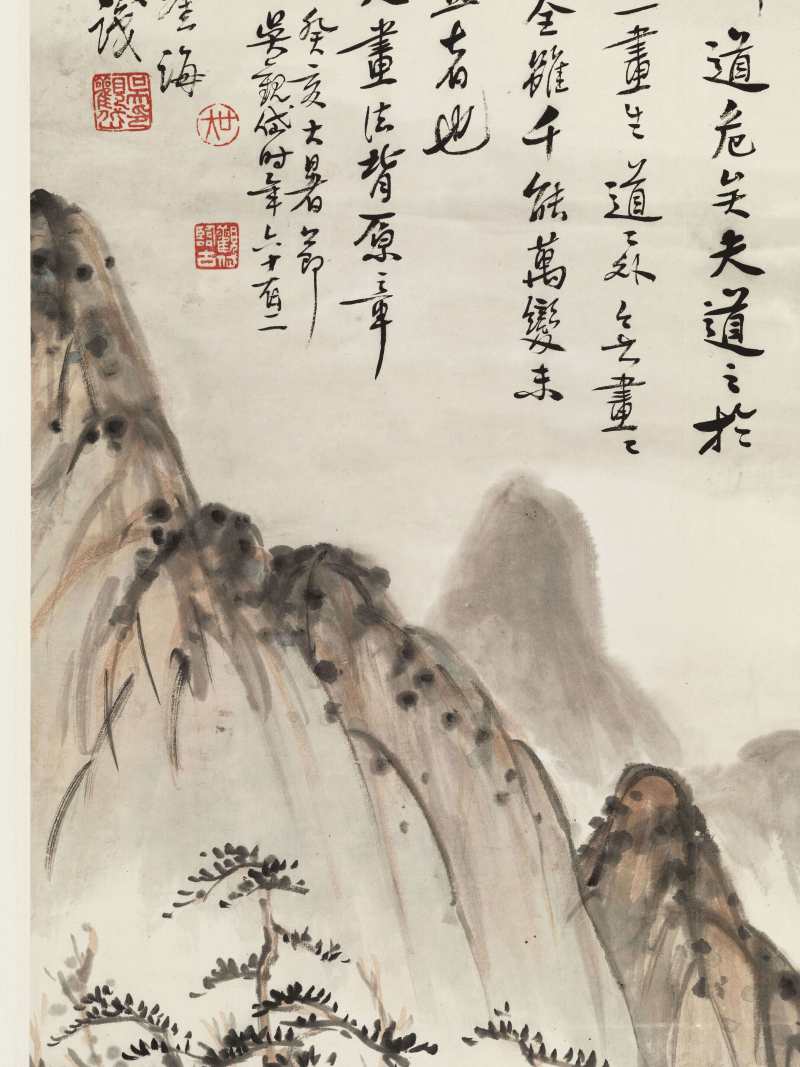 道危矣夫道之於
一畫生道之外無畫之
全雖千能萬變未
者也
畫法背原章
癸亥大暑節
吳觀岱時年六十有二
海
觀岱